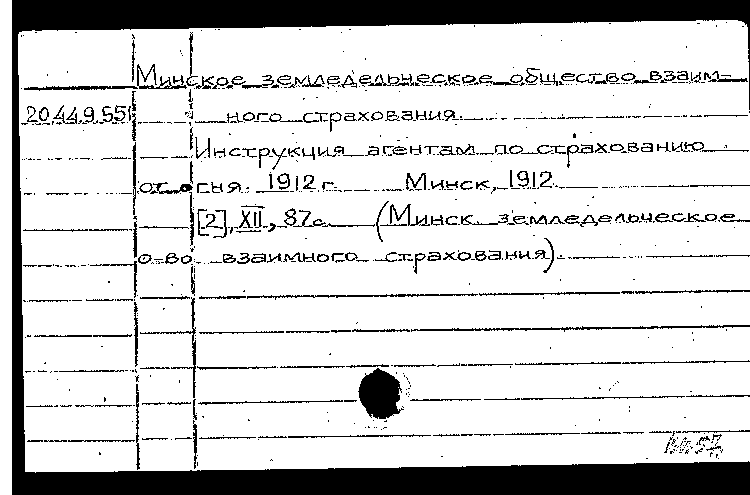 Минское земледельческое общество взаим-
20.44.9.551 ного страхования.
Инструкция агентам по страхованию
от огня. 1912 г. Минск, 1912.
[2], XII, 87с. (Минск. земледельческое
о-во взаимного страхования).